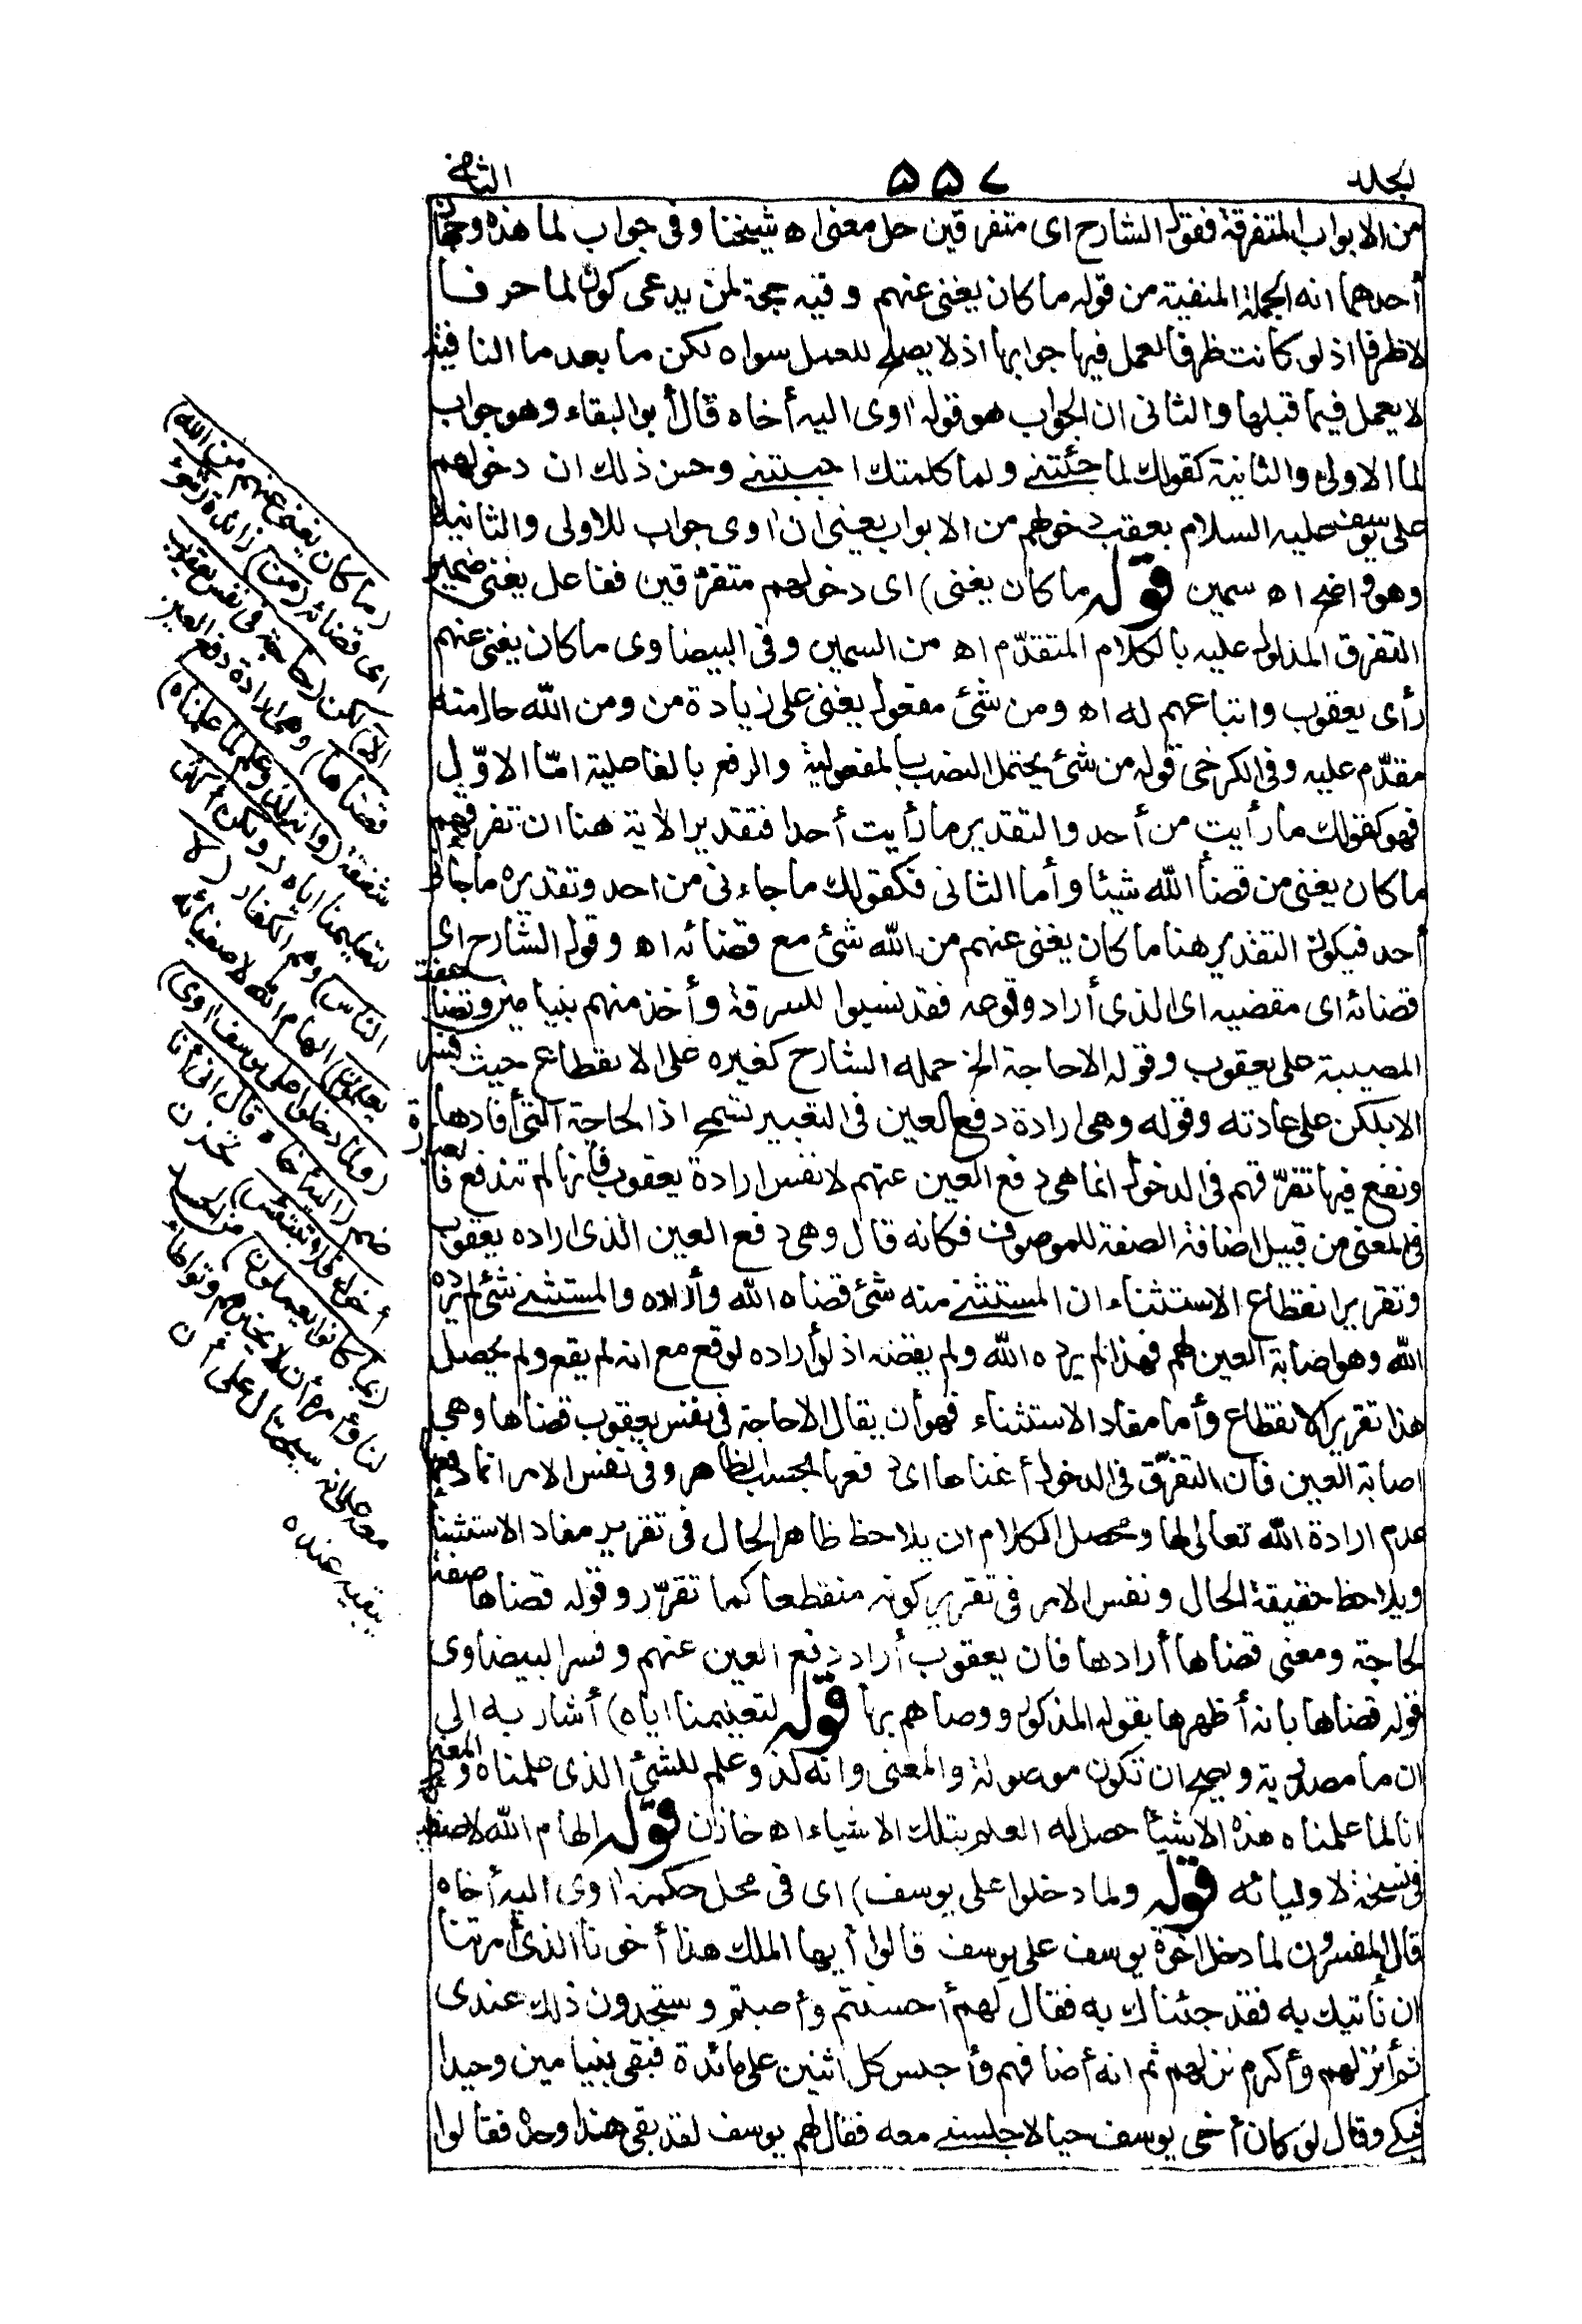 الجلد ٥٥٧ الثاني
من الابواب المتفرقة فقول الشارح اى متفرقين حل معنى اه شيخنا وفى جواب لما هذه وجهان
أحدهما انه الجملة المنفية من قوله ما كان يغنى عنهم وفيه حجة لمن يدعى كون لما حرفا
لا ظرفا اذ لو كانت ظرفا لعمل فيها جوابها اذ لا يصلح للعمل سواه لكن ما بعد ما النافية
لا يعمل فيما قبلها والثانى ان الجواب هو قوله اوى اليه أخاه قال أبو البقاء وهو جواب
لما الاولى والثانية كقولك لما جئتنى ولما كلمتك اجبتنى وحسن ذلك ان دخولهم
على يوسف عليه السلام بعقب دخولهم من الابواب يعنى ان اوى جواب للاولى والثانية
وهو واضح اه سمين قوله ما كان يغنى) اى دخولهم متفرّقين ففاعل يغنى ضمير
التفرق المدلول عليه بالكلام المتقدّم اه من السمين وفى البيضاوى ما كان يغنى عنهم
رأى يعقوب واتباعهم له اه ومن شئ مفعول يغنى على زيادة من ومن الله حال منه
مقدّم عليه وفى الكرخى قوله من شئ يحتمل النصب بالمفعولية والرفع بالفاعلية امّا الاوّل
فهو كقولك ما رأيت من أحد والتقدير ما رأيت أحدا فتقدير الاية هنا ان تفرقهم
ما كان يغنى من قضأ الله شيئا وأما الثانى فكقولك ما جاءنى من احد وتقديره ما جاءنى
أحد فيكون التقدير هنا ما كان يغنى عنهم من الله شئ مع قضائه اه وقول الشارح اى
قضائه اى مقضيه اى الذى أراد وقوعه فقد نسبوا للسرقة وأخذ منهم بنيامين وتضاعفت
المصيبة على يعقوب وقوله الا حاجة الخ حمله الشارح كغيره على الانقطاع حيث فسر
الا بلكن على عادته وقوله وهى ارادة دفع العين فى التعبير تسمح اذ الحاجة التى أفادها
ونفع فيها تفرّقهم فى الدخول انما هى دفع العين عنهم لا نفس ارادة يعقوب فانها لم تندفع فالعبارة
فى المعنى من قبيل اضافة الصفة للموصوف فكانه قال وهى دفع العين الذى اراده يعقوب
وتقرير انقطاع الاستثناء ان المستثنى منه شئ قضاه الله وأراده والمستثنى شئ لم يرده
الله وهو اصابة العين لهم فهذا لم يرده الله ولم يقضه اذ لو أراده لوقع مع انه لم يقع ولم يحصل
هذا تقرير الانقطاع وأما مفاد الاستثناء فهو أن يقال الا حاجة فى نفس يعقوب قضاها وهى
اصابة العين فان التفرّق فى الدخول أغناها اى دفعها بحسب الظاهر وفى نفس الامر انما دفعها
عدم ارادة الله تعالى لها ومحصل الكلام ان يلاحظ ظاهر الحال فى تقرير مفاد الاستثنأ
ويلاحظ حقيقة الحال ونفس الامر فى تقرير كونه منقطعا كما تقرّر وقوله قضاها صفة
لحاجة ومعنى قضاها أرادها فان يعقوب أراد دفع العين عنهم وفسر البيضاوى
قوله قضاها بانه أظهرها بقوله المذكور ووصاهم بها قوله لتعليمنا اياه) أشار به الى
ان ما مصدرية ويصح ان تكون موصولة والمعنى وانه لذو علم للشئ الذى علمناه والمعنى
انا لما علمناه هذه الاشيأ حصل له العلم بتلك الاشياء اه خازن قوله الهام الله لاصفيائه
فى نسخة لاوليائه قوله ولما دخلوا على يوسف) اى فى محل حكمه اوى اليه أخاه
قال المفسرون لما دخل اخوة يوسف على يوسف قالوا أيها الملك هذا أخونا الذى أمرتنا
ان نأتيك به فقد جئناك به فقال لهم أحسنتم وأصبتم وستجدون ذلك عندى
ثم أنزلهم وأكرم نزلهم ثم انه أضافهم وأجلس كل اثنين على مائدة فبقى بنيامين وحيدا
فبكى وقال لو كان أخى يوسف حيا لاجلسنى معه فقال لهم يوسف لقد بقى هذا وحده فقالوا
(ما كان يغنى عنهم من الله)
اى قضائه (من) زائدة (شئ
الا) لكن (حاجة فى نفس يعقوب
قضاها) وهى ارادة دفع العين
شفقة (وانه لذو علم لما علمناه)
لتعليمنا اياه (ولكن أكثر
الناس) وهم الكفار (لا
يعلمون) الهام الله لاصفيائه
(ولما دخلوا على يوسف اوى)
ضم (اليه أخاه قال انى أنا
أخوك فلا تبتئس) تحزن
(بما كانوا يعملون) من الحسد
لنا وأمره أن لا يخبرهم وتواطأ
معه على انه سيحتال على أن
يبقيه عنده